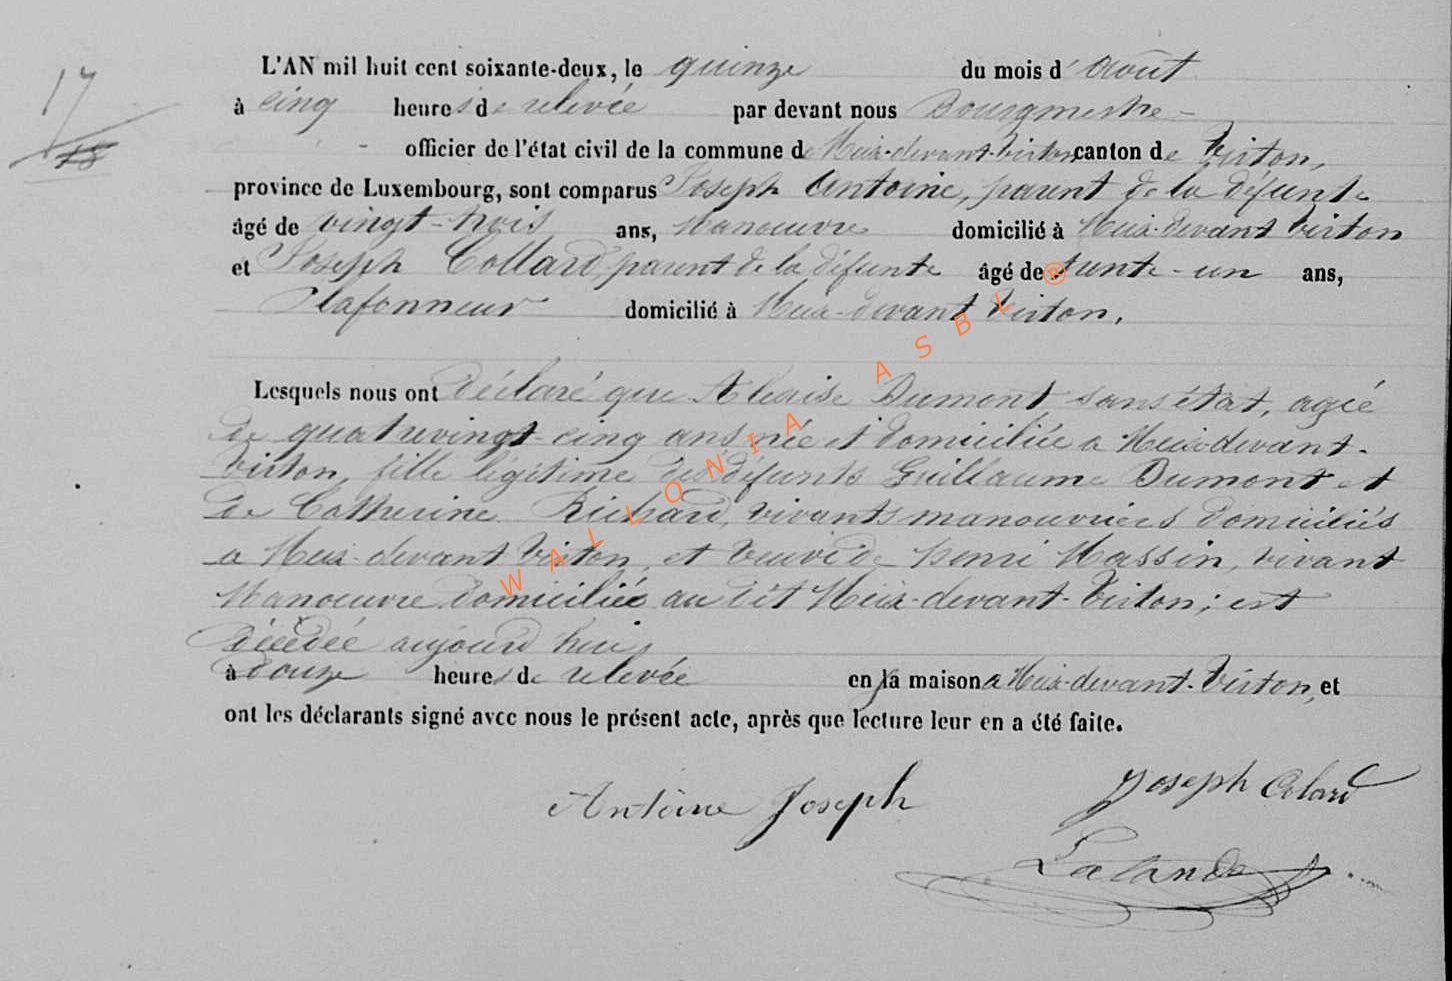 17
18
L'AN mil huit cent soixante-deux, le quinze du mois d'Août
à cinq heures de relevée par devant nous Bourgmestre -
- officier de l'état civil de la commune de Meix-devant-Virton, canton de Virton,
province de Luxembourg, sont comparus Joseph Antoine, parent de la défunte
âgé de vingt-trois ans, Manoeuvre domicilié à Meix-devant Virton
et Joseph Collard, parent de la défunte âgé de trente-un ans,
Plafonneur domicilié à Meix-devant Virton.
Lesquels nous ont déclaré que Dumont, sans état, agée
de quatrevingt-cinq ans née et domiciliée a Meix-devant-
Virton, fille légitime des défunts Guillaume Dumont et
de Catherine Richard, vivants manouvriers domiciliés
a Meix-devant Virton, et veuve de Henri Massin, vivant
Manoeuvre domiciliée au dit Meix-devant-Virton; est
décédée aujourd'hui
à douze heures de relevée en sa maison a Meix-devant-Virton, et
ont les déclarants signé avec nous le présent acte, après que lecture leur en a été faite.
Antoine Joseph
Joseph Colard
Lalande
WALLONIA ASBL ®